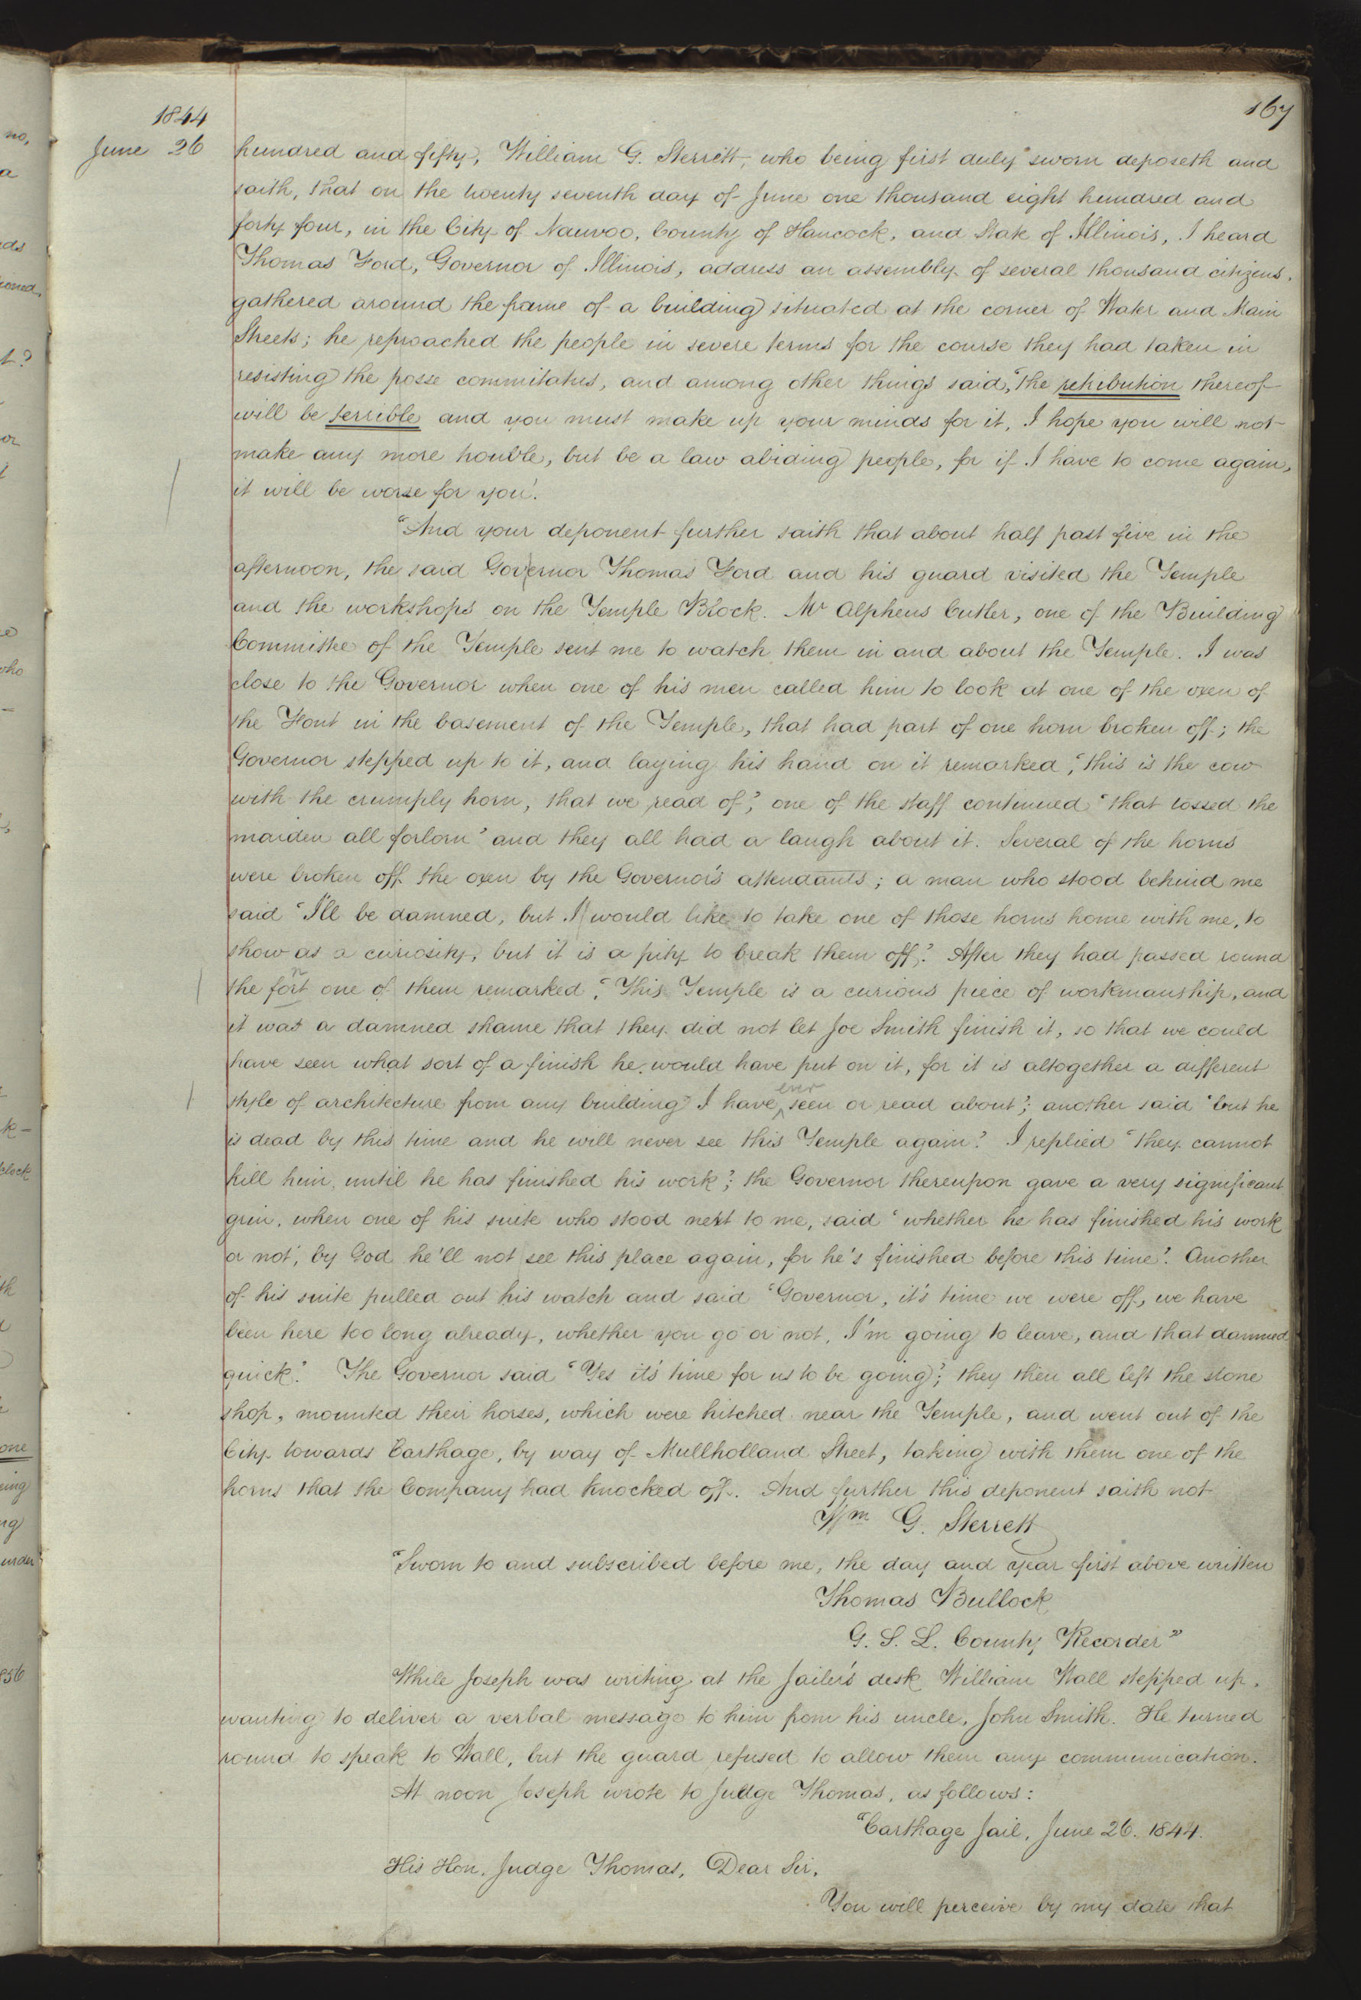 167
1844
June 26
hundred and fifty, William G. Sterrett, who being first duly sworn deposeth and
saith, that on the twenty seventh day of June one thousand eight hundred and
forty four, in the City of Nauvoo, County of Hancock, and State of Illinois, I heard
Thomas Ford, Governor of Illinois, address an assembly of several thousand citizens,
gathered around the frame of a building situated at the corner of Water and Main
Streets; he reproached the people in severe terms for the course they had taken in
resisting the posse commitatus, and among other things said, "the retribution thereof
will be terrible and you must make up your minds for it, I hope you will not
make any more trouble, but be a law abiding people, for if I have to come again,
it will be worse for you'.
"And your deponent further saith that about half past five in the
afternoon, the said Governor Thomas Ford and his guard visited the Temple
and the workshops on the Temple Block. Mr Alpheus Cutler, one of the Building
Committee of the Temple sent me to watch them in and about the Temple. I was
close to the Governor when one of his men called him to look at one of the oxen of
the Font in the basement of the Temple, that had part of one horn broken off; the
Governor stepped up to it, and laying his hand on it remarked, 'this is the cow
with the crumply horn, that we read of', one of the staff continued 'that tossed the
maiden all forlorn' and they all had a laugh about it. Several of the horns
were broken off the oxen by the Governor's attendants; a man who stood behind me
said 'I'll be damned, but I would like to take one of those horns home with me, to
show as a curiosity, but it is a pity to break them off.' After they had passed round
the font one of them remarked, 'This Temple is a curious piece of workmanship, and
it was a damned shame that they did not let Joe Smith finish it, so that we could
have seen what sort of a finish he would have put on it, for it is altogether a different
style of architecture from any building I have ever seen or read about'; another said 'but he
is dead by this time and he will never see this Temple again.' I replied 'they cannot
kill him, until he has finished his work'; the Governor thereupon gave a very significant
grin, when one of his suite who stood next to me, said 'whether he has finished his work
or not, by God he'll not see this place again, for he's finished before this time'. Another
of his suite pulled out his watch and said 'Governor, it's time we were off, we have
been here too long already, whether you go or not, I'm going to leave, and that damned
quick.' The Governor said 'Yes it's time for us to be going'; they then all left the stone
shop, mounted their horses, which were hitched near the Temple, and went out of the
City towards Carthage, by way of Mullholland Street, taking with them one of the
horns that the Company had knocked off. And further this deponent saith not
Wm G. Sterrett
"Sworn to and subscribed before me, the day and year first above written
Thomas Bullock
G. S. L. County Recorder"
While Joseph was writing at the Jailer's desk William Wall stepped up,
wanting to deliver a verbal message to him from his uncle, John Smith. He turned
round to speak to Wall, but the guard refused to allow them any communication.
At noon Joseph wrote to Judge Thomas, as follows:
"Carthage Jail, June 26. 1844.
His Hon. Judge Thomas, Dear Sir,
You will perceive by my date that